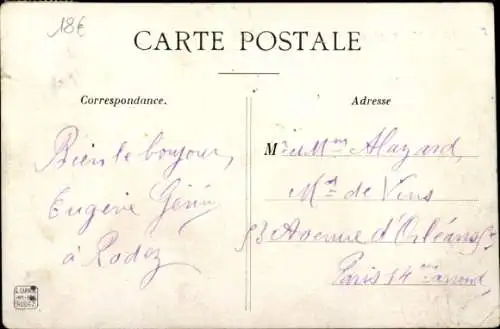 18€
CARTE POSTALE
Correspondance.
Adresse
Bien le bonjour,
Eugénie Génie
à Rodez
Mr et Mme Alazard,
Md de Vins
53 Avenue d'Orléans 53
Paris 14me arrond